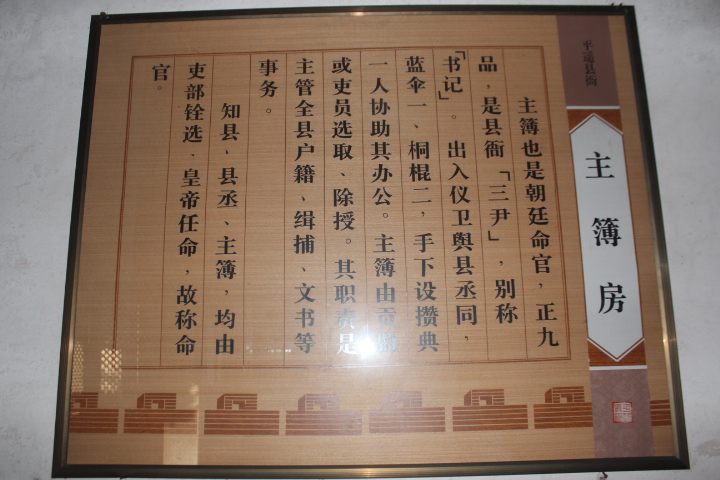 平遥县衙
主簿房
主簿也是朝廷命官，正九
品，是县衙「三尹」，别称
「书记」。出入仪卫舆县丞同，
蓝伞一、桐棍二，手下设攒典
一人协助其办公。主簿由贡
或吏员选取、除授。其职责是
主管全县户籍、缉捕、文书等
事务。
知县、县丞、主簿，均由
吏部铨选、皇帝任命，故称命
官。